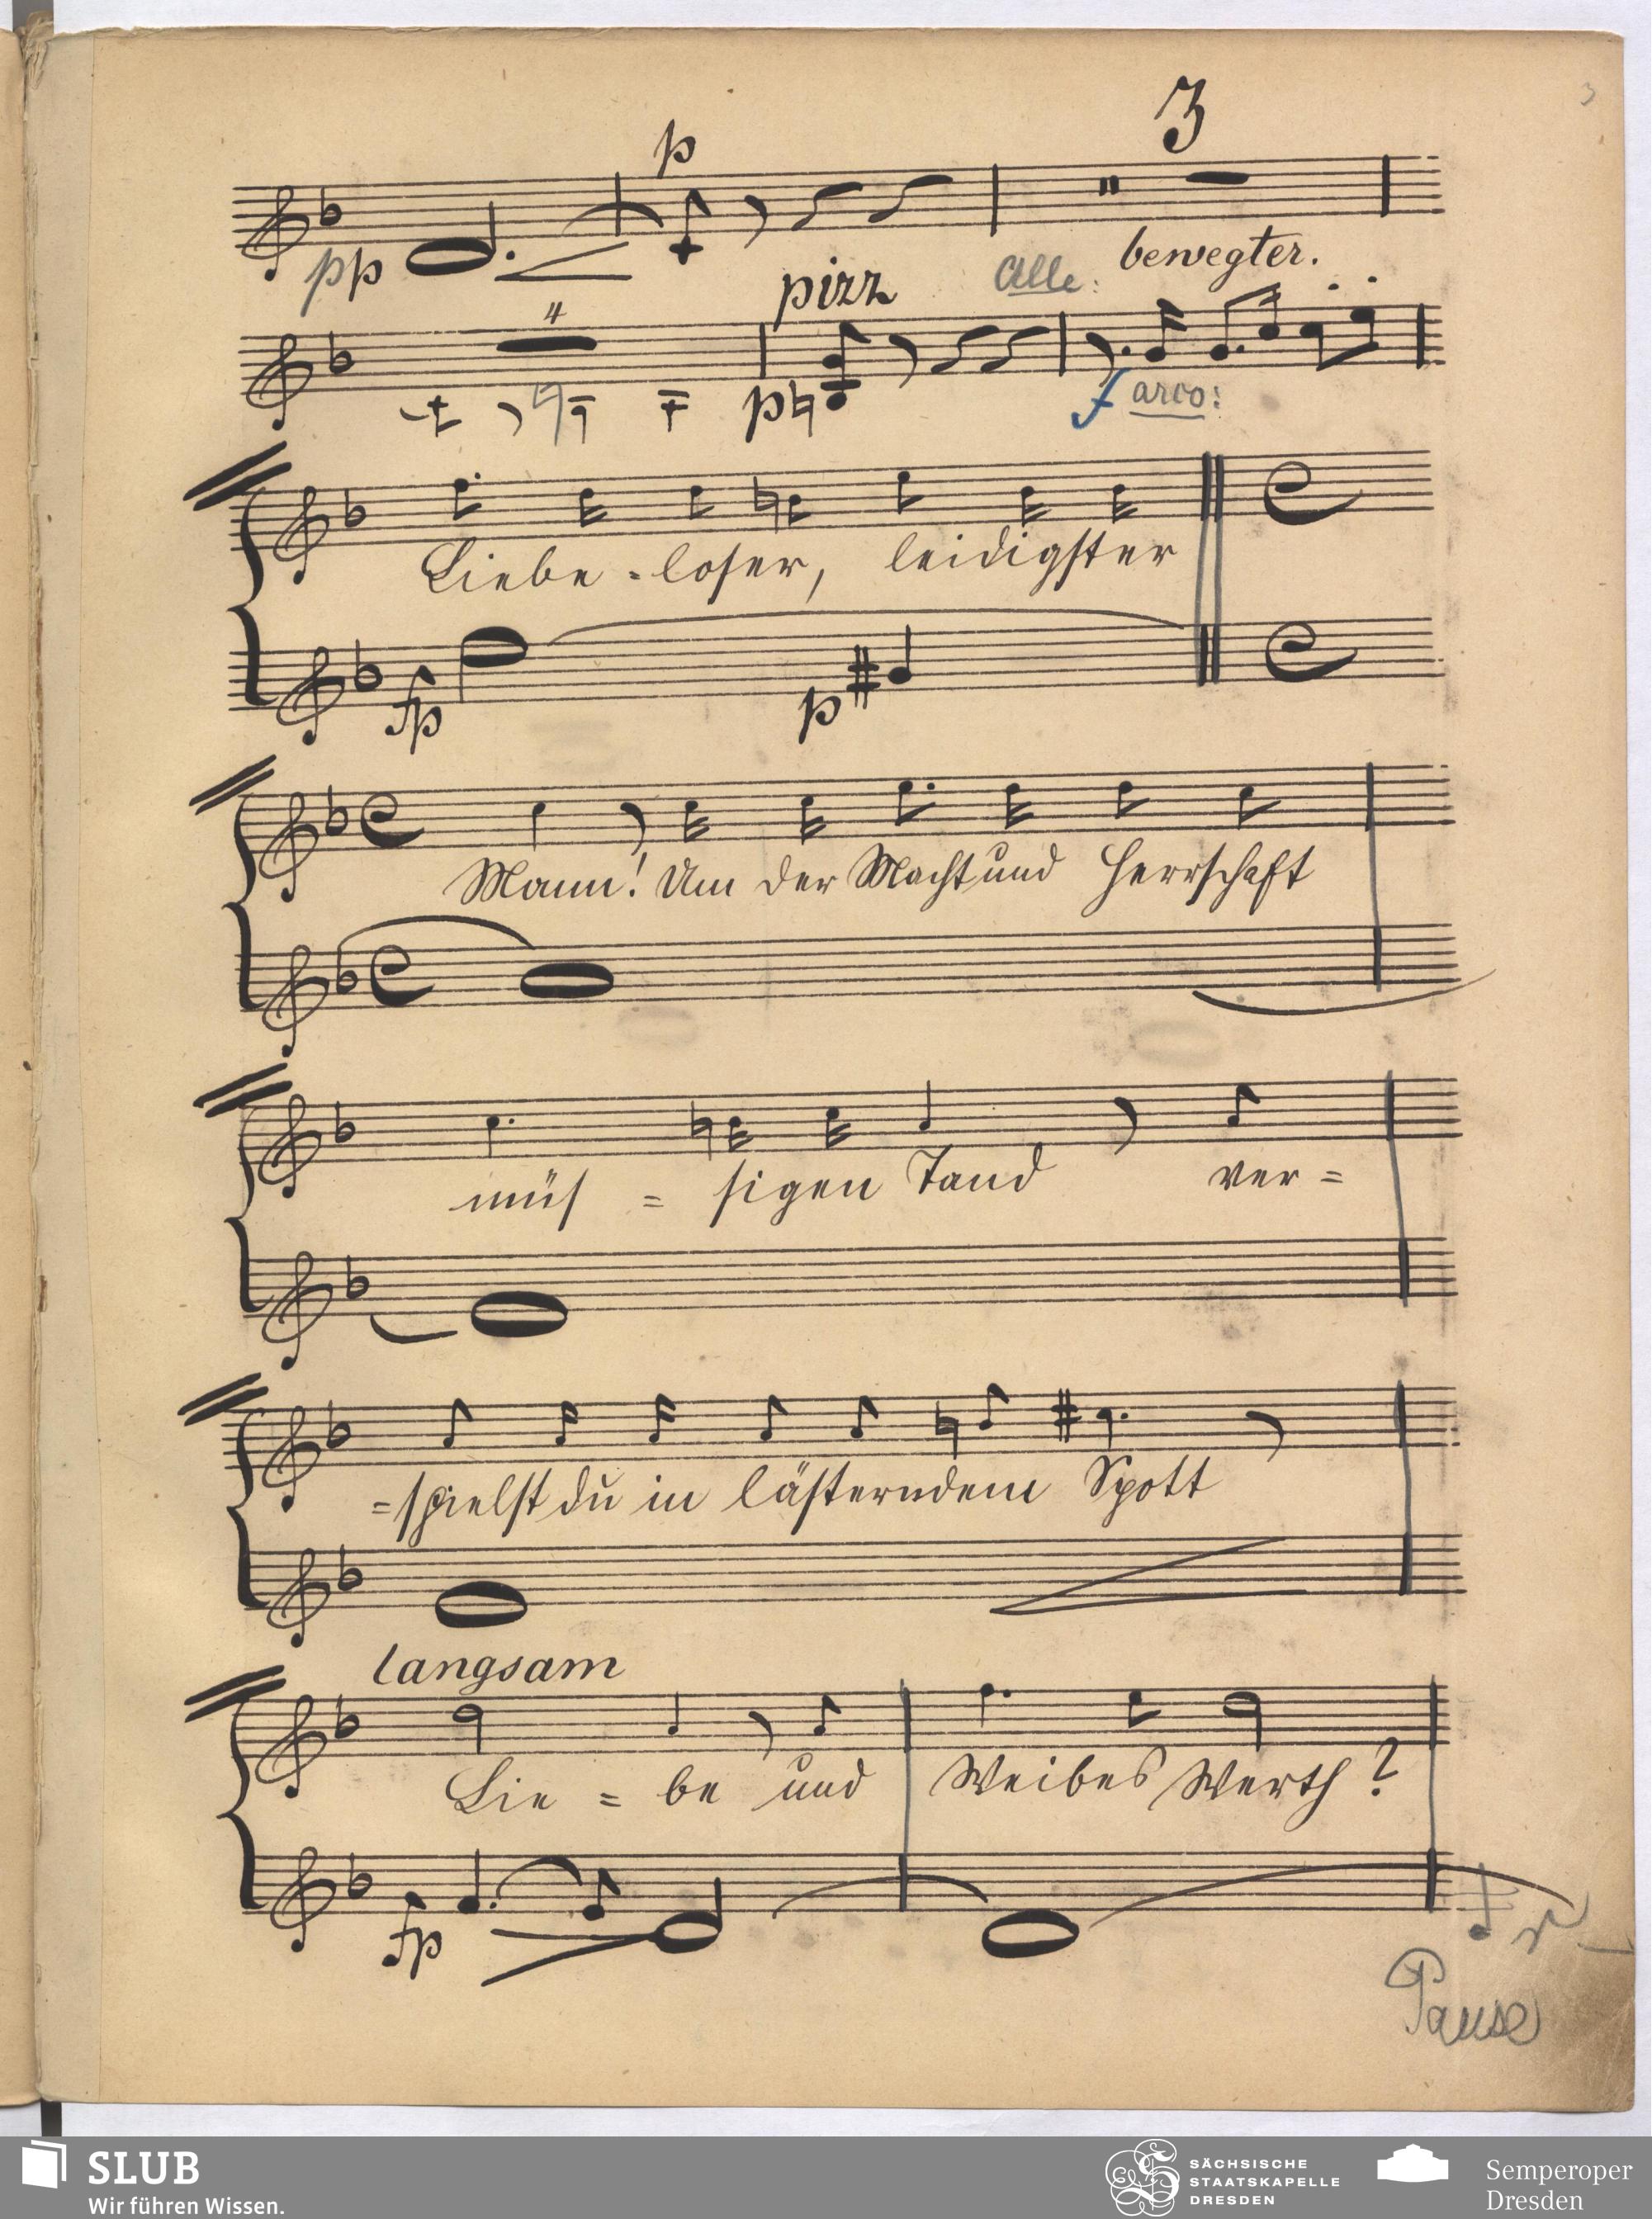 3
p
3
pp
pizz
Alle:
bewegter.
4
p
f arco:
Liebe = loser, leidigster
fp
p
Mann! Um der Macht und Herrschaft
müs = sigen Tand ver =
= spielst du in lästerndem Spott
langsam
Lie = be und Weibes Werth?
fp
Pause
SLUB
Wir führen Wissen.
SÄCHSISCHE
STAATSKAPELLE
DRESDEN
Semperoper
Dresden